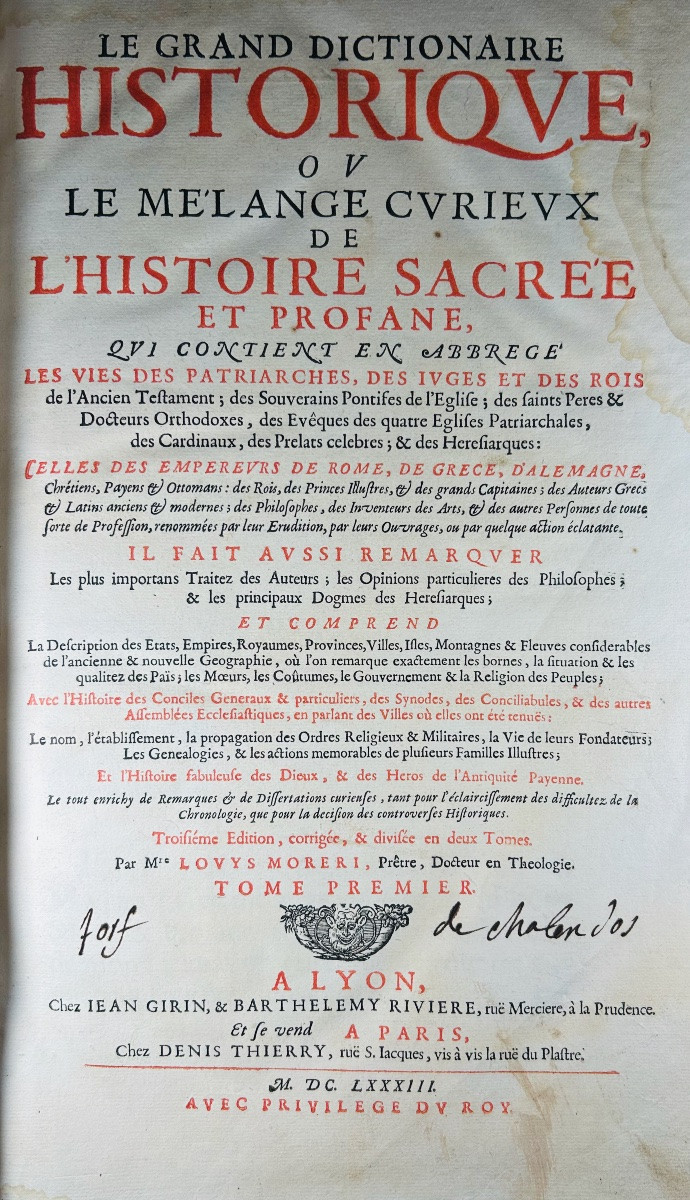 LE GRAND DICTIONAIRE
HISTORIQVE,
OV
LE MÉLANGE CVRIEVX
DE
L'HISTOIRE SACRÉE
ET PROFANE,
QVI CONTIENT EN ABBREGÉ
LES VIES DES PATRIARCHES, DES IVGES ET DES ROIS
de l'Ancien Teſtament ; des Souverains Pontifes de l'Egliſe ; des ſaints Peres &
Docteurs Orthodoxes, des Evêques des quatre Egliſes Patriarchales,
des Cardinaux, des Prelats celebres ; & des Hereſiarques :
CELLES DES EMPEREVRS DE ROME, DE GRECE, D'ALEMAGNE,
Chrétiens, Payens & Ottomans : des Rois, des Princes Illuſtres, & des grands Capitaines ; des Auteurs Grecs
& Latins anciens & modernes ; des Philoſophes, des Inventeurs des Arts, & des autres Perſonnes de toute
ſorte de Profeſſion, renommées par leur Erudition, par leurs Ouvrages, ou par quelque action éclatante.
IL FAIT AVSSI REMARQVER
Les plus importans Traitez des Auteurs ; les Opinions particulieres des Philoſophes ;
& les principaux Dogmes des Hereſiarques ;
ET COMPREND
La Deſcription des Etats, Empires, Royaumes, Provinces, Villes, Iſles, Montagnes & Fleuves conſiderables
de l'ancienne & nouvelle Geographie, où l'on remarque exactement les bornes, la ſituation & les
qualitez des Païs ; les Mœurs, les Coûtumes, le Gouvernement & la Religion des Peuples ;
Avec l'Hiſtoire des Conciles Generaux & particuliers, des Synodes, des Conciliabules, & des autres
Aſſemblées Eccleſiaſtiques, en parlant des Villes où elles ont été tenuës :
Le nom, l'établiſſement, la propagation des Ordres Religieux & Militaires, la Vie de leurs Fondateurs ;
Les Genealogies, & les actions memorables de pluſieurs Familles Illuſtres ;
Et l'Hiſtoire fabuleuſe des Dieux, & des Heros de l'Antiquité Payenne.
Le tout enrichy de Remarques & de Diſſertations curieuſes, tant pour l'éclairciſſement des difficultez de la
Chronologie, que pour la deciſion des controverſes Hiſtoriques.
Troiſiéme Edition, corrigée, & diviſée en deux Tomes.
Par Mre LOVYS MORERI, Prêtre, Docteur en Theologie.
TOME PREMIER.
de chalendos
A LYON,
Chez IEAN GIRIN, & BARTHELEMY RIVIERE, ruë Merciere, à la Prudence.
Et ſe vend A PARIS,
Chez DENIS THIERRY, ruë S. Iacques, vis à vis la ruë du Plaſtre.
M. DC. LXXXIII.
AVEC PRIVILEGE DV ROY.